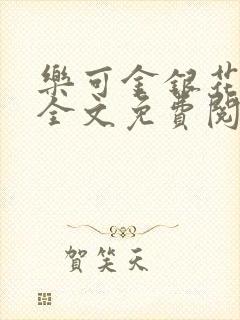 樂可金銀花
全文免費閱
賀笑天